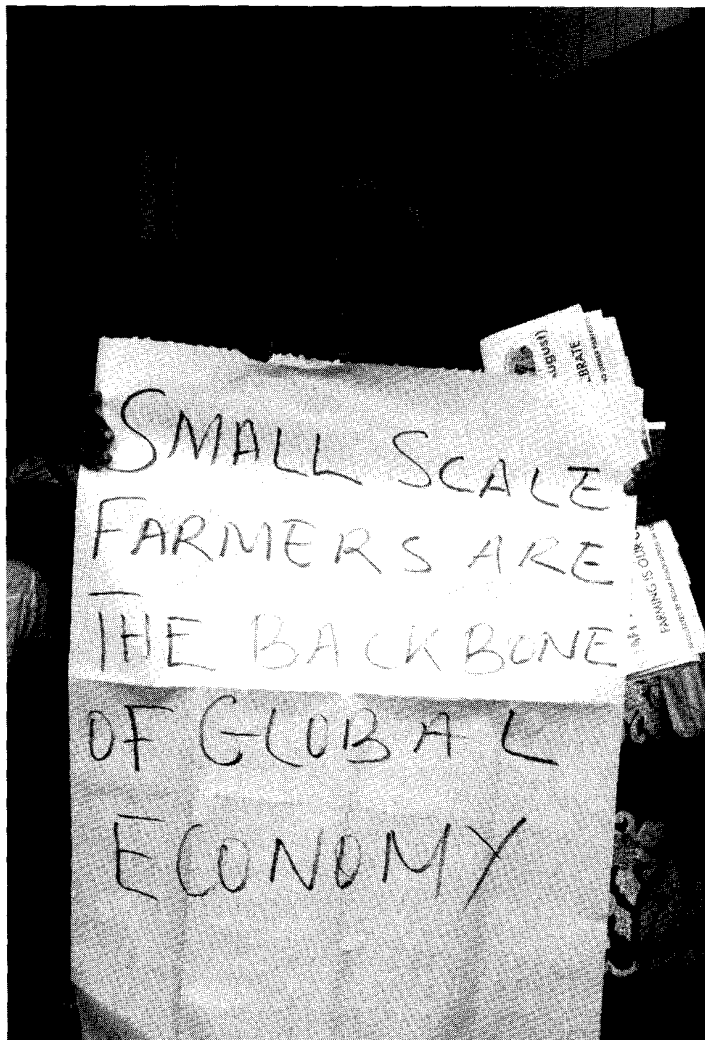 SMALL SCALE
FARMERS ARE
THE BACKBONE
OF GLOBAL
ECONOMY
FARMING IS OUR